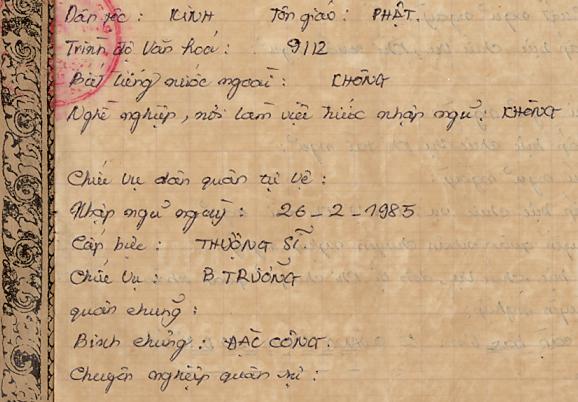 Dân tộc : KINH Tôn giáo : PHẬT.
Trình độ Văn hoá : 9/12
Biết tiếng nước ngoài : KHÔNG
Nghề nghiệp, nơi làm việc trước nhập ngũ : KHÔNG
Chức vụ dân quân tự vệ :
Nhập ngũ ngày : 26-2-1985
Cấp bậc : THƯỢNG SĨ.
Chức vụ : B.TRƯỞNG
quân chủng :
Binh chủng : ĐẶC CÔNG.
Chuyên nghiệp quân sự :